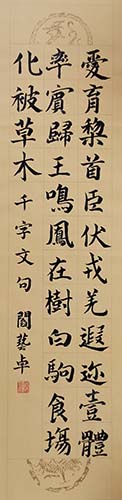 愛育黎首臣伏戎羌遐邇壹體
率賓歸王鳴鳳在樹白駒食場
化被草木千字文句 閻藝卓